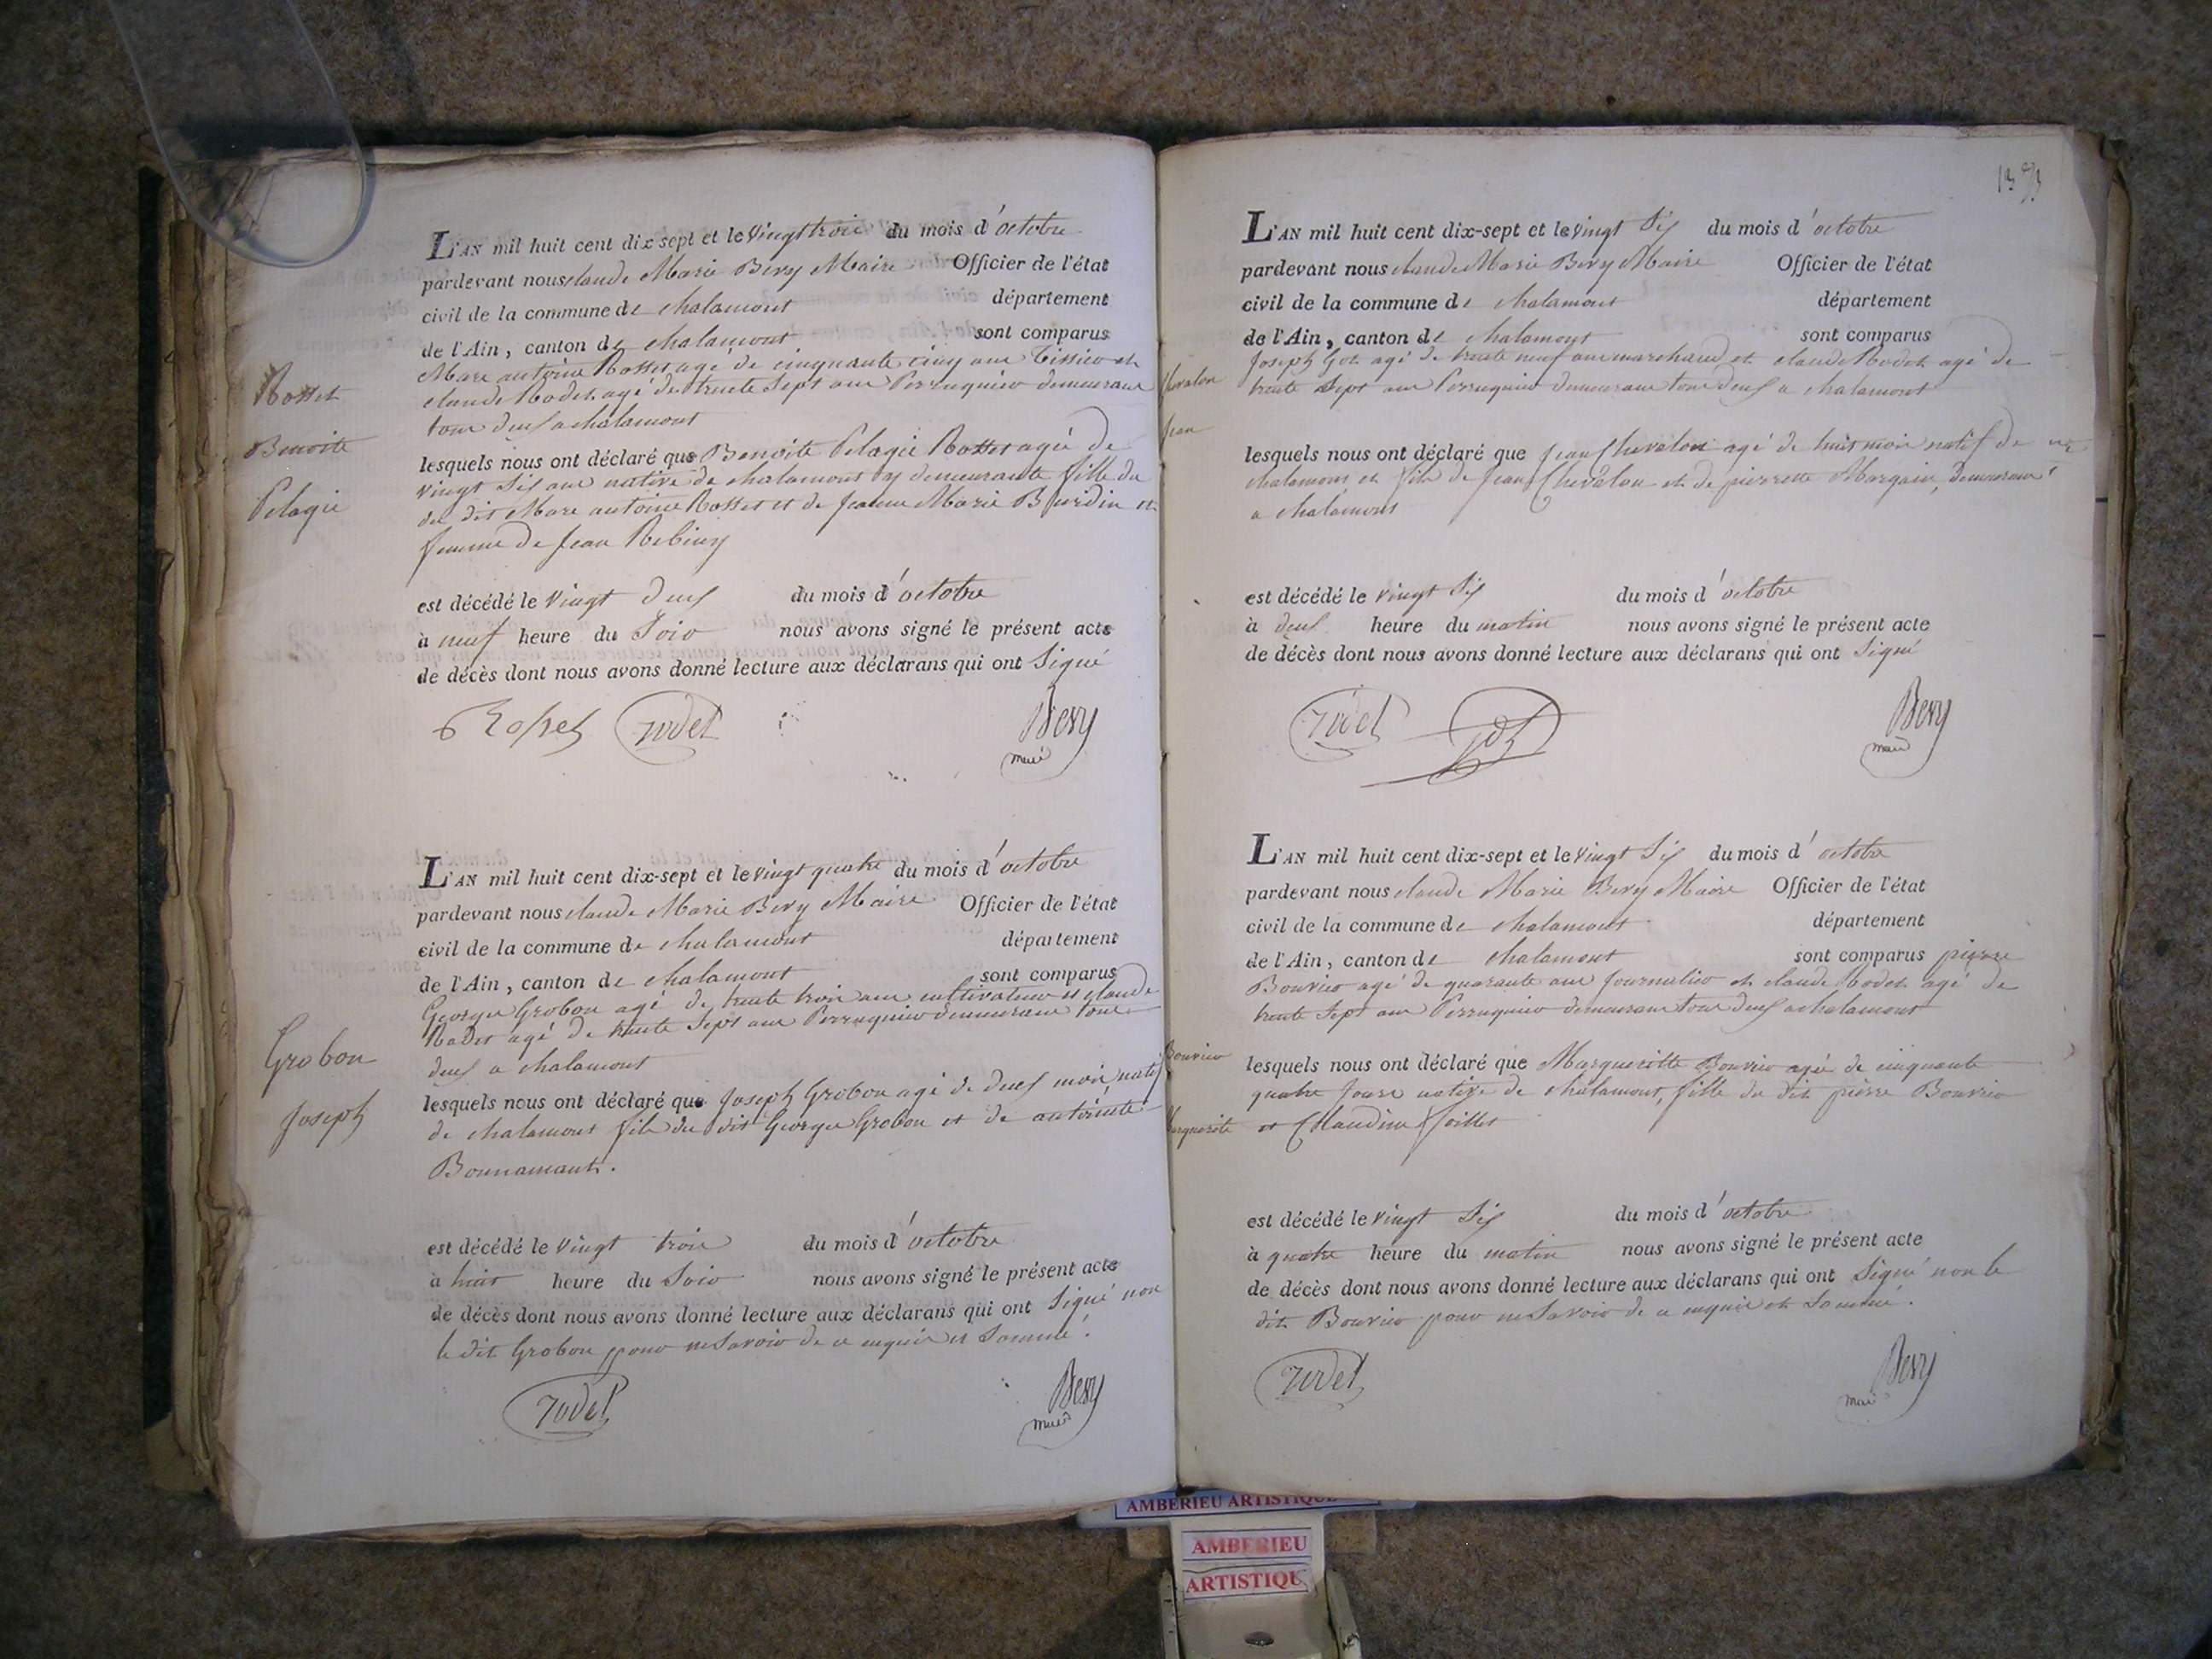 Rosset
Benoite
Pelagie
L'AN mil huit cent dix-sept et le vingt trois du mois d'octobre
pardevant nous claude Marie Bevy Maire Officier de l'état
civil de la commune de chalamont département
de l'Ain, canton de chalamont sont comparus
Marc antoine Rosset agé de cinquante cinq ans tissier et
claude Rodet agé de trente sept ans Perruquier demeurant
tous deux a chalamont
lesquels nous ont déclaré que Benoite Pelagie Rosset agée de
vingt six ans native de chalamont y demeurante fille du
du dit Marc antoine Rosset et de Jeanne Marie Bourdin et
femme de Jean
est décédé le vingt deux du mois d'octobre
à neuf heure du soir nous avons signé le présent acte
de décès dont nous avons donné lecture aux déclarans qui ont signé
Rosset Rodet Bevy
maire
Grobon
Joseph
L'AN mil huit cent dix-sept et le vingt quatre du mois d'octobre
pardevant nous claude Marie Bevy Maire Officier de l'état
civil de la commune de chalamont département
de l'Ain, canton de chalamont sont comparus
George Grobon agé de trente trois ans cultivateur et claude
Rodet agé de trente sept ans Perruquier demeurant tous
deux a chalamont
lesquels nous ont déclaré que Joseph Grobon agé de deux mois natif
de chalamont fils du dit George Grobon et de antoinette
Bonnamant.
est décédé le vingt trois du mois d'octobre
à huit heure du soir nous avons signé le présent acte
de décès dont nous avons donné lecture aux déclarans qui ont signé non
le dit Grobon pour ne savoir de ce enquis et sommé.
Rodet Bevy
maire
13
L'AN mil huit cent dix-sept et le vingt six du mois d'octobre
pardevant nous claude Marie Bevy Maire Officier de l'état
civil de la commune de chalamont département
de l'Ain, canton de chalamont sont comparus
Joseph Got agé de trente neuf ans marchand et claude Rodet agé de
trente sept ans Perruquier demeurant tous deux a chalamont
Jean
lesquels nous ont déclaré que Jean Chevalon agé de huit mois natif de
chalamont et fils de Jean Chevalon et de pierrette Margain, demeurant
a chalamont
est décédé le vingt six du mois d'octobre
à deux heure du matin nous avons signé le présent acte
de décès dont nous avons donné lecture aux déclarans qui ont signé
Rodet Got Bevy
maire
L'AN mil huit cent dix-sept et le vingt six du mois d'octobre
pardevant nous claude Marie Bevy Maire Officier de l'état
civil de la commune de chalamont département
de l'Ain, canton de chalamont sont comparus pierre
Bouvier agé de quarante ans Journalier et claude Rodet agé de
trente sept ans Perruquier demeurant tous deux a chalamont
Bouvier
lesquels nous ont déclaré que Margueritte Bouvier agée de cinquante
quatre Jours native de chalamont, fille du dit pierre Bouvier
et Claudine
est décédé le vingt six du mois d'octobre
à quatre heure du matin nous avons signé le présent acte
de décès dont nous avons donné lecture aux déclarans qui ont signé non le
dit Bouvier pour ne savoir de ce enquis et sommé.
Rodet Bevy
maire
AMBERIEU ARTISTIQUE
AMBERIEU
ARTISTIQU